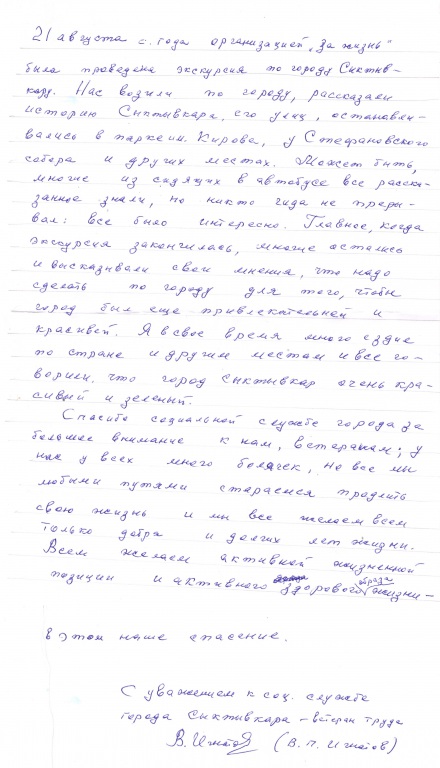 21 августа с. года организацией „За жизнь"
была проведена экскурсия по городу Сыктыв-
кару. Нас возили по городу, рассказали
историю Сыктывкара, его улиц, останавли-
вались в парке им. Кирова, у Стефановского
собора и других местах. Может быть,
многие из сидящих в автобусе все расска-
занное знали, но никто гида не преры-
вал: все было интересно. Главное, когда
экскурсия закончилась, многие остались
и высказывали свои мнения, что надо
сделать по городу для того, чтобы
город был еще привлекательней и
красивей. Я в свое время много ездил
по стране и другим местам и все го-
ворили, что город Сыктывкар очень кра-
сивый и зеленый.
Спасибо социальной службе города за
большое внимание к нам, ветеранам; у
нас у всех много болячек, но все мы
любыми путями стараемся продлить
свою жизнь и мы все желаем всем
только добра и долгих лет жизни.
Всем желаем активной жизненной
позиции и активного здорового образа жизни -
в этом наше спасение.
С уважением к соц. службе
города Сыктывкара - ветеран труда
В. Игнатов (В. П. Игнатов)